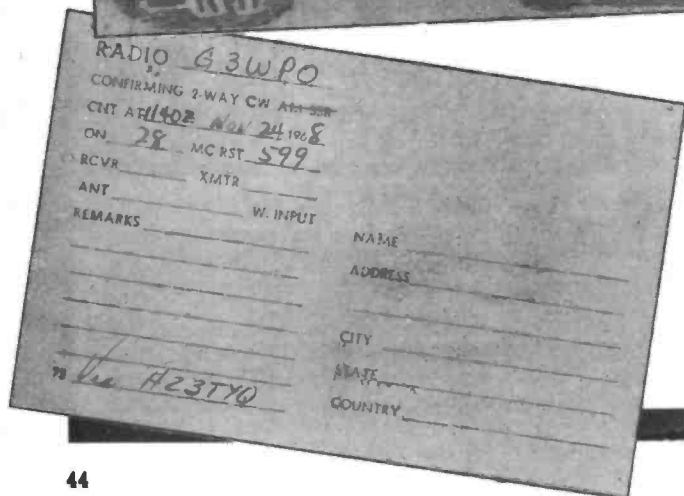 RADIO G3WPO
CONFIRMING 2-WAY CW AM SSB
CNT AT 1140Z Nov 24 1968
ON 28 MC RST 599
RCVR XMTR
ANT W. INPUT
REMARKS
73 Via HZ3TYQ
NAME
ADDRESS
CITY
STATE
COUNTRY
44